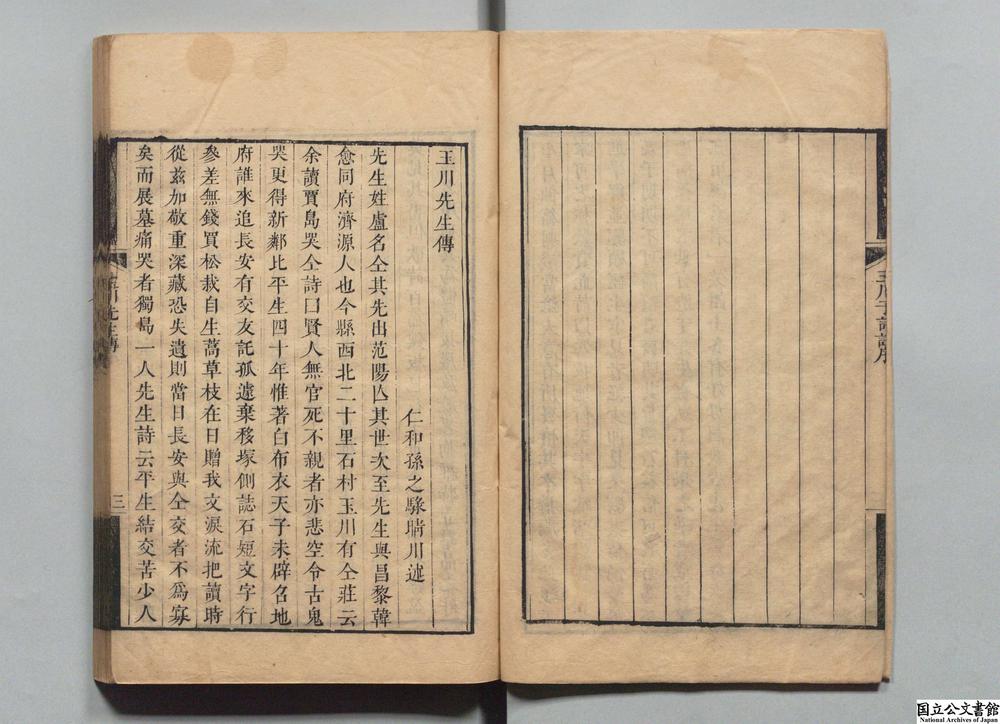 玉川子詩註序
玉川先生傳
仁和孫之騄晴川述
先生姓盧名仝其先出范陽亾其世次至先生與昌黎韓
愈同府濟源人也今縣西北二十里石村玉川有仝莊云
余讀賈島哭仝詩曰賢人無官死不親者亦悲空令古鬼
哭更得新鄰比平生四十年惟著白布衣天子未辟召地
府誰來追長安有交友託孤遽棄移塚側誌石短文字行
參差無錢買松栽自生蒿草枝在日贈我文淚流把讀時
從兹加敬重深藏恐失遺則當日長安與仝交者不爲寡
矣而展墓痛哭者獨島一人先生詩云平生結交苦少人
玉川先生傳
三
国立公文書館
National Archives of Japan